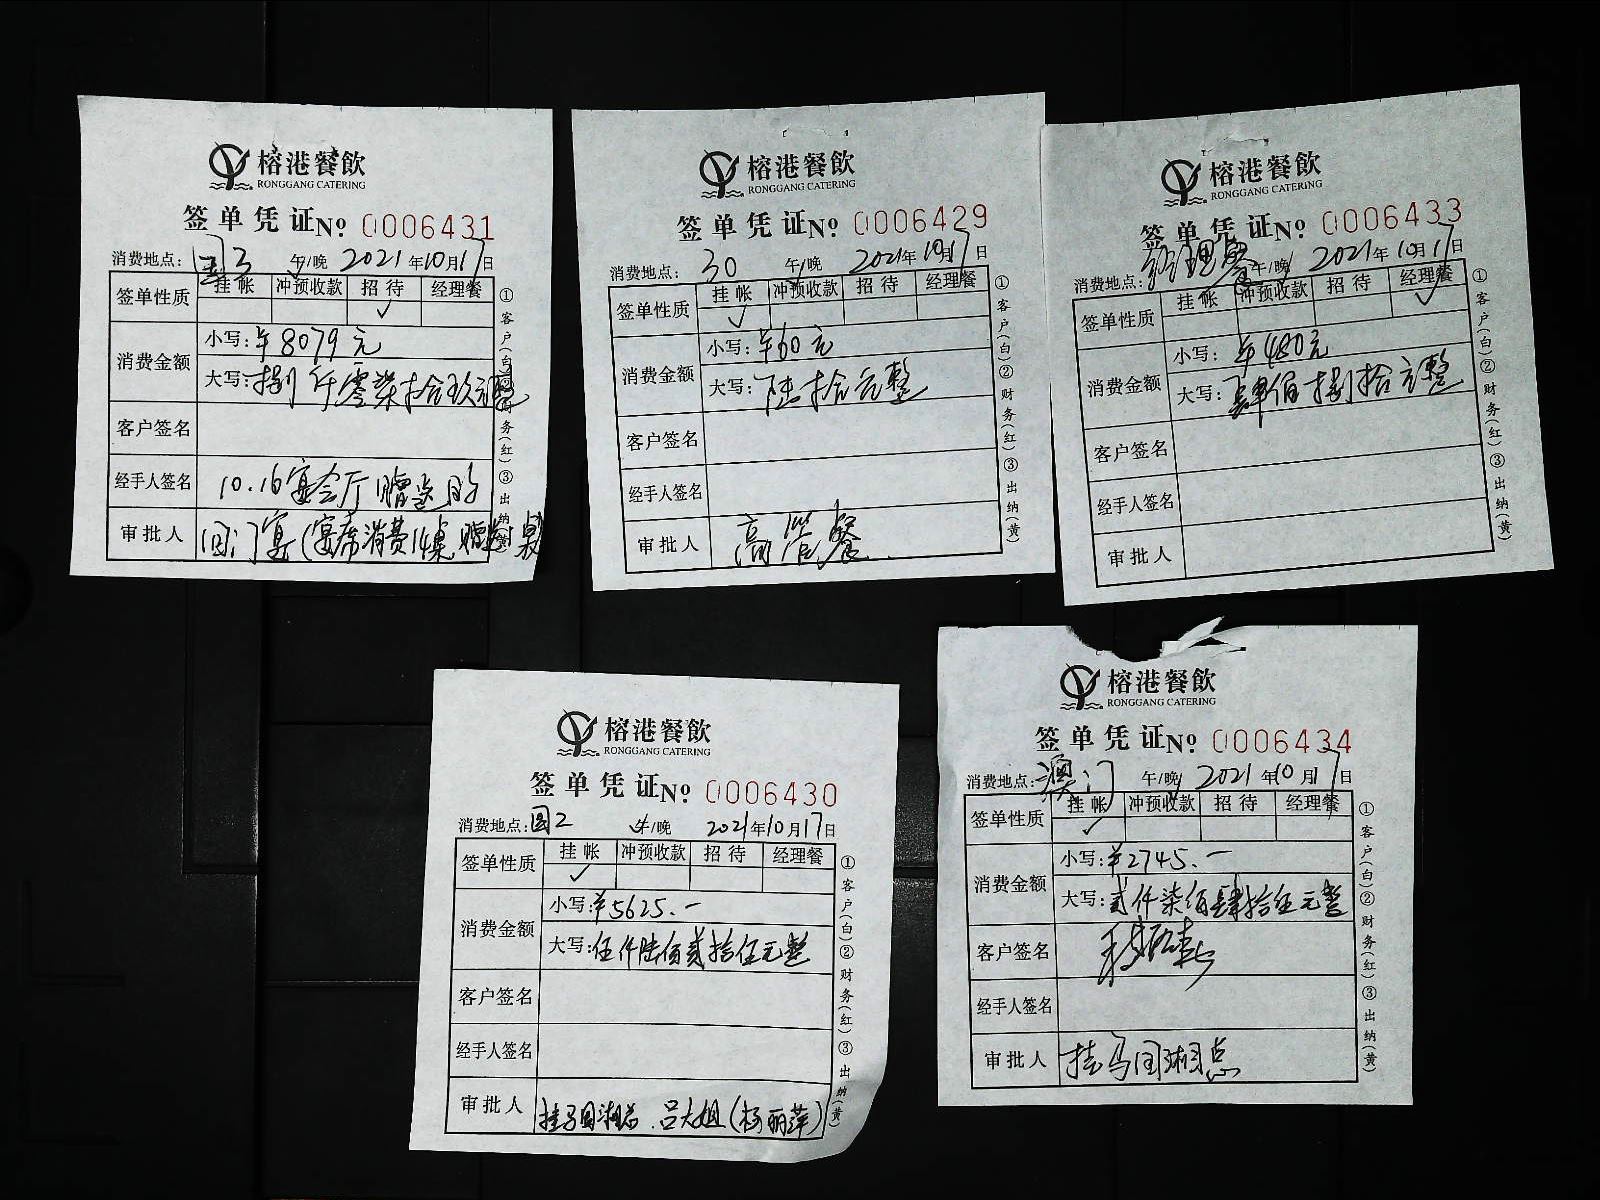 榕港餐飲
RONGGANG CATERING
签单凭证No 0006431
消费地点: 国3 午/晚 2021年10月17日
签单性质 挂帐 冲预收款 招待 经理餐
✓
消费金额 小写: ¥8079元
大写: 捌仟零柒拾玖元整
客户签名
经手人签名 10.16宴会厅赠送的
审批人 回门宴(宴席消费14桌
①客户(白)②财务(红)③出纳(黄)
榕港餐飲
RONGGANG CATERING
签单凭证No 0006429
消费地点: 30 午/晚 2021年10月17日
签单性质 挂帐 冲预收款 招待 经理餐
✓
消费金额 小写: ¥60元
大写: 陆拾元整
客户签名
经手人签名
审批人 高管餐
①客户(白)②财务(红)③出纳(黄)
榕港餐飲
RONGGANG CATERING
签单凭证No 0006433
消费地点: 经理餐 午/晚 2021年10月17日
签单性质 挂帐 冲预收款 招待 经理餐
✓
消费金额 小写: ¥480元
大写: 肆佰捌拾元整
客户签名
经手人签名
审批人
①客户(白)②财务(红)③出纳(黄)
榕港餐飲
RONGGANG CATERING
签单凭证No 0006430
消费地点: 国2 午/晚 2021年10月17日
签单性质 挂帐 冲预收款 招待 经理餐
✓
消费金额 小写: ¥5625.一
大写: 伍仟陆佰贰拾伍元整
客户签名
经手人签名
审批人 挂马国湘总 吕大姐(杨丽萍)
①客户(白)②财务(红)③出纳(黄)
榕港餐飲
RONGGANG CATERING
签单凭证No 0006434
消费地点: 澳门 午/晚 2021年10月17日
签单性质 挂帐 冲预收款 招待 经理餐
✓
消费金额 小写: ¥2745.一
大写: 贰仟柒佰肆拾伍元整
客户签名
经手人签名
审批人 挂马国湘总
①客户(白)②财务(红)③出纳(黄)